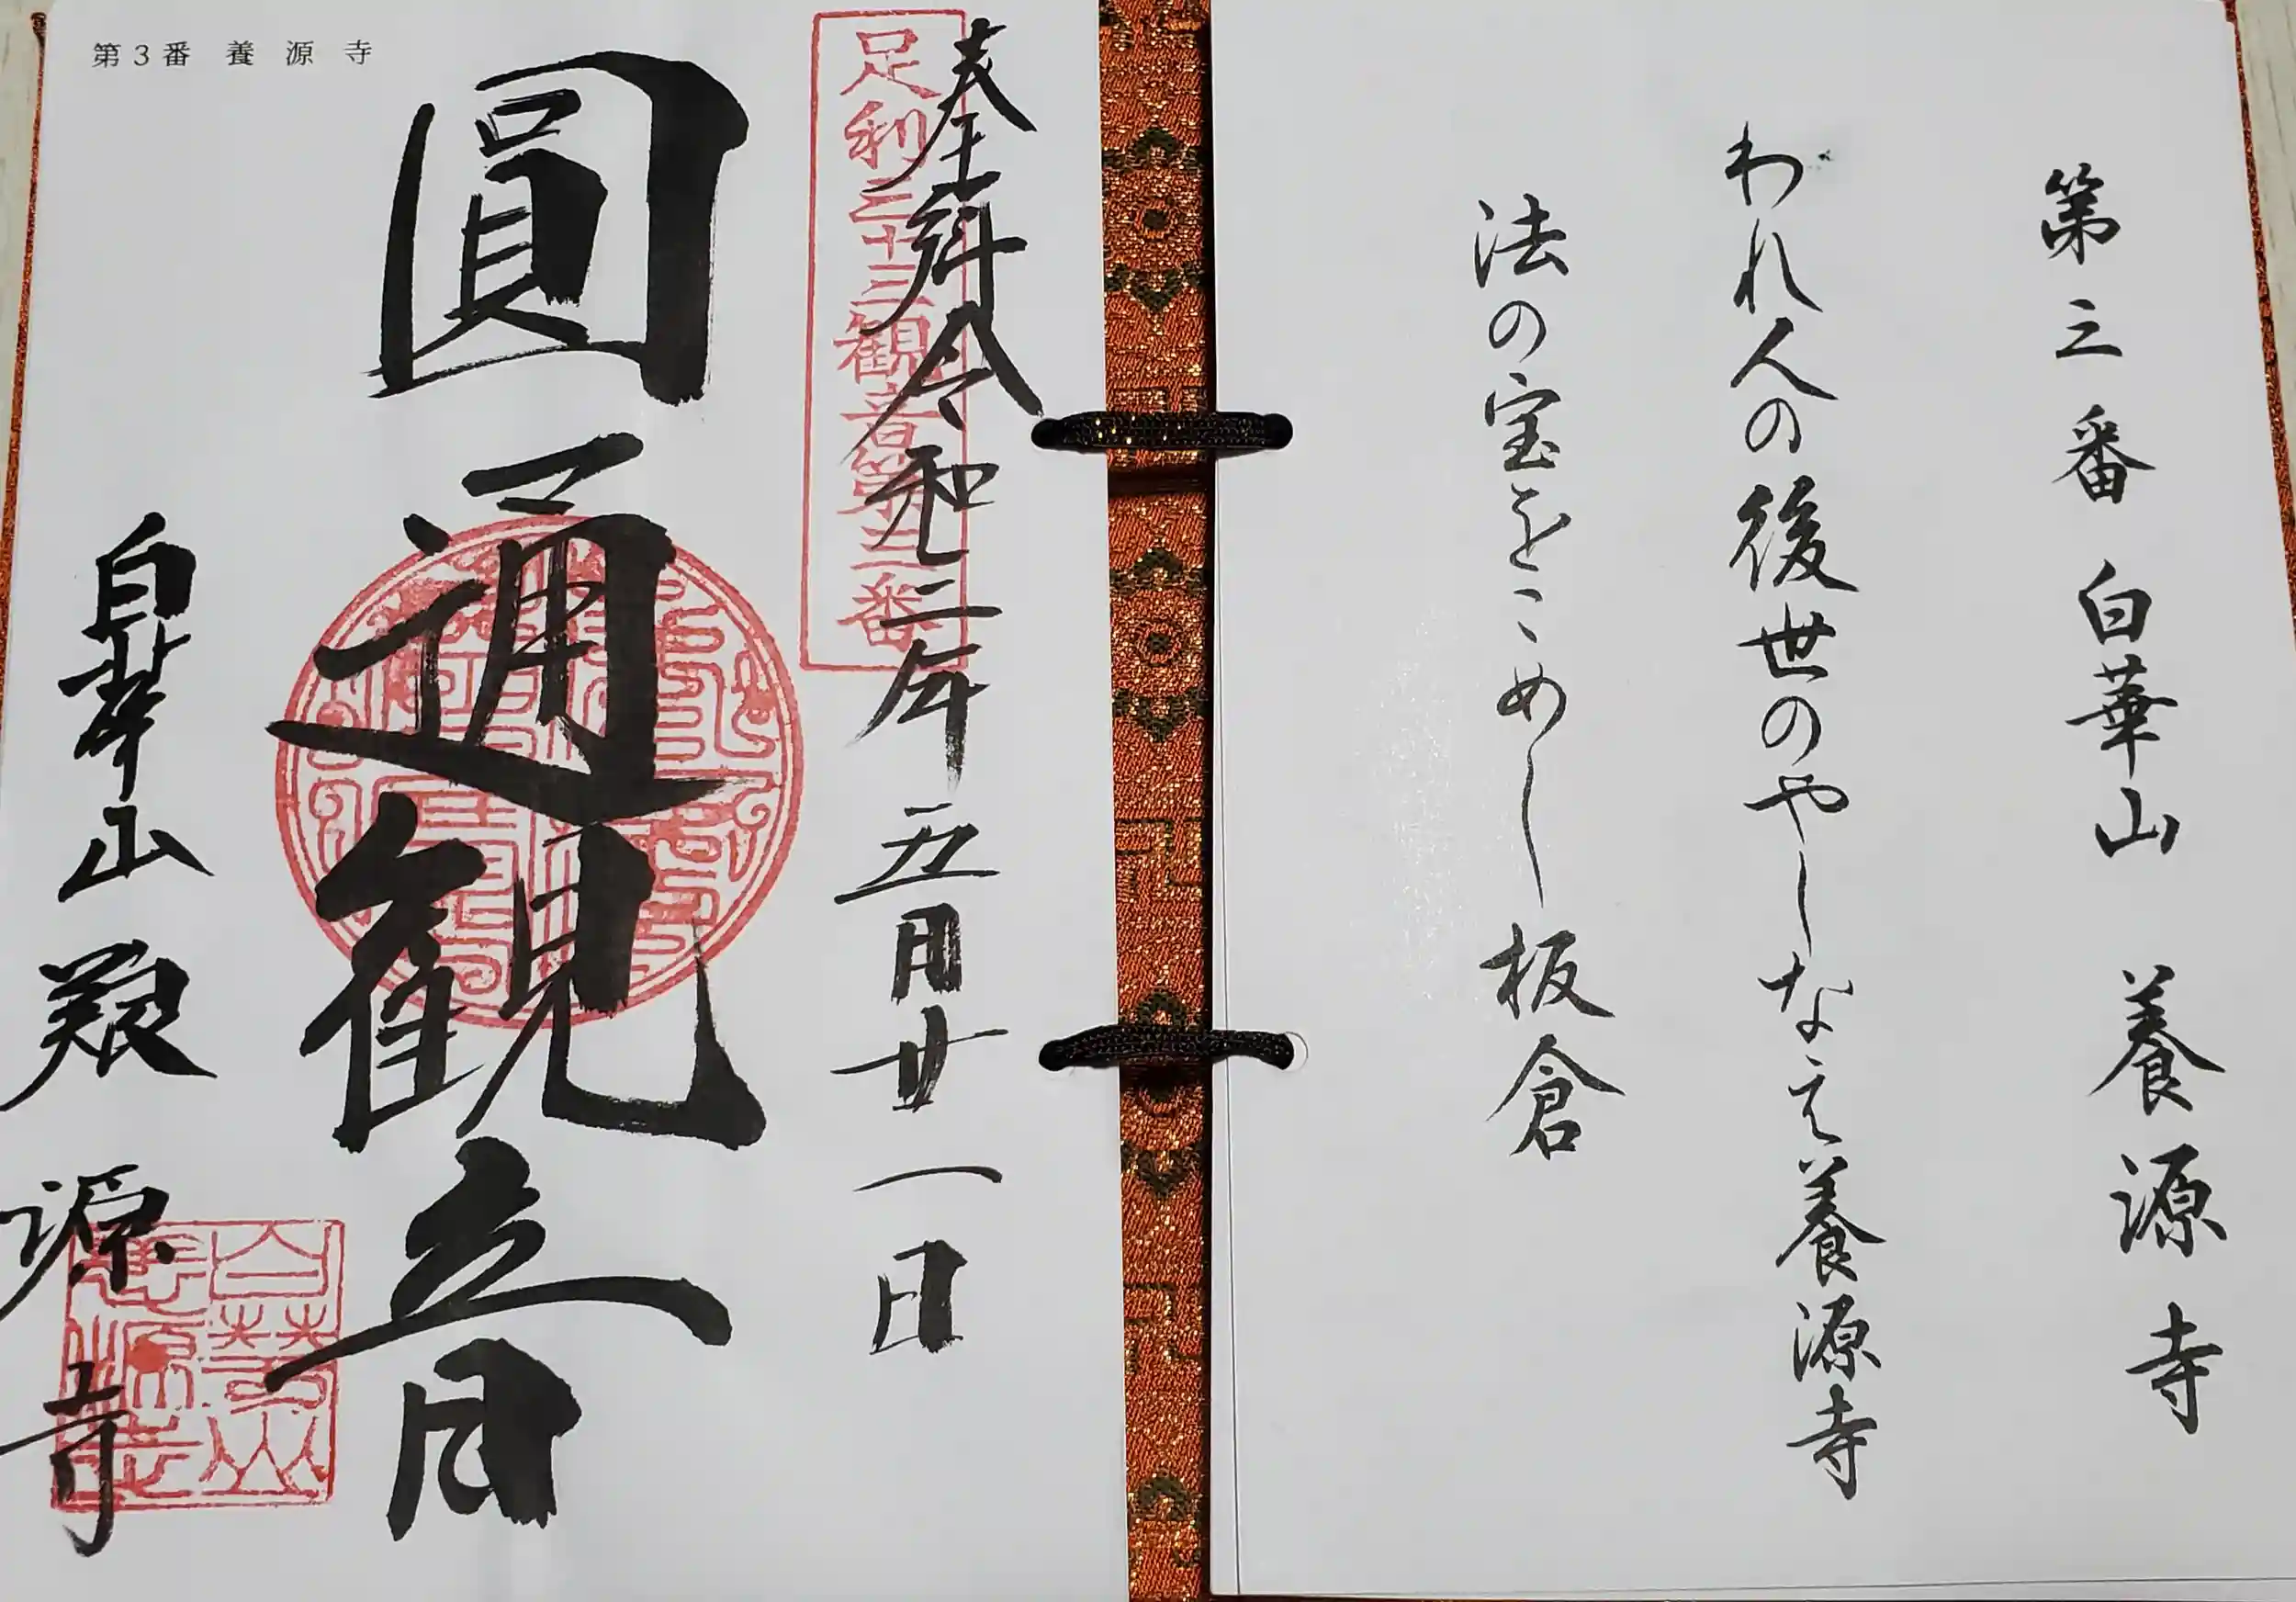 第三番 白華山 養源寺
われ人の後世のやしなえ養源寺
法の宝をこめし板倉
第3番 養源寺
奉拝 令和二年五月廿一日
足利三十三観音第三番
圓通観音
白華山 養源寺